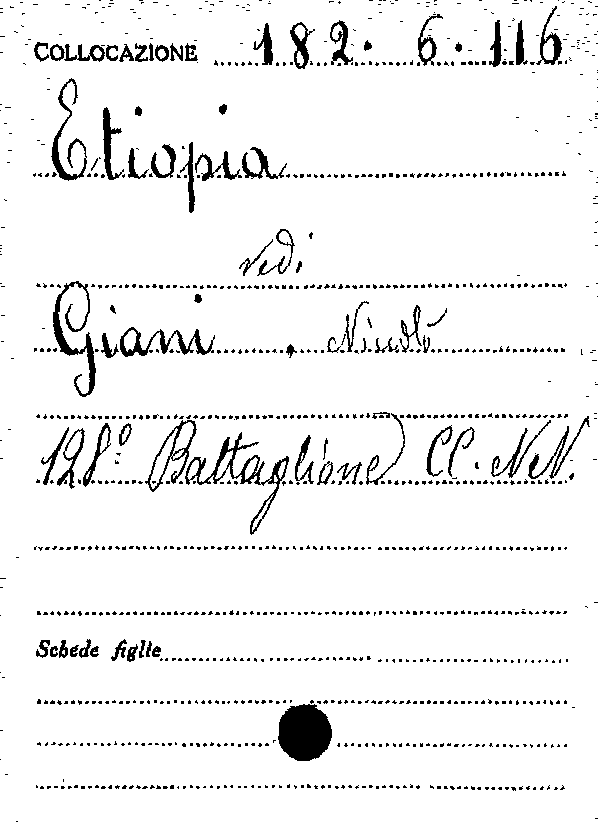 COLLOCAZIONE 182. 6. 116
Etiopia
vedi
Giani, Niccolò
128º Battaglione CC. NN.
Schede figlie